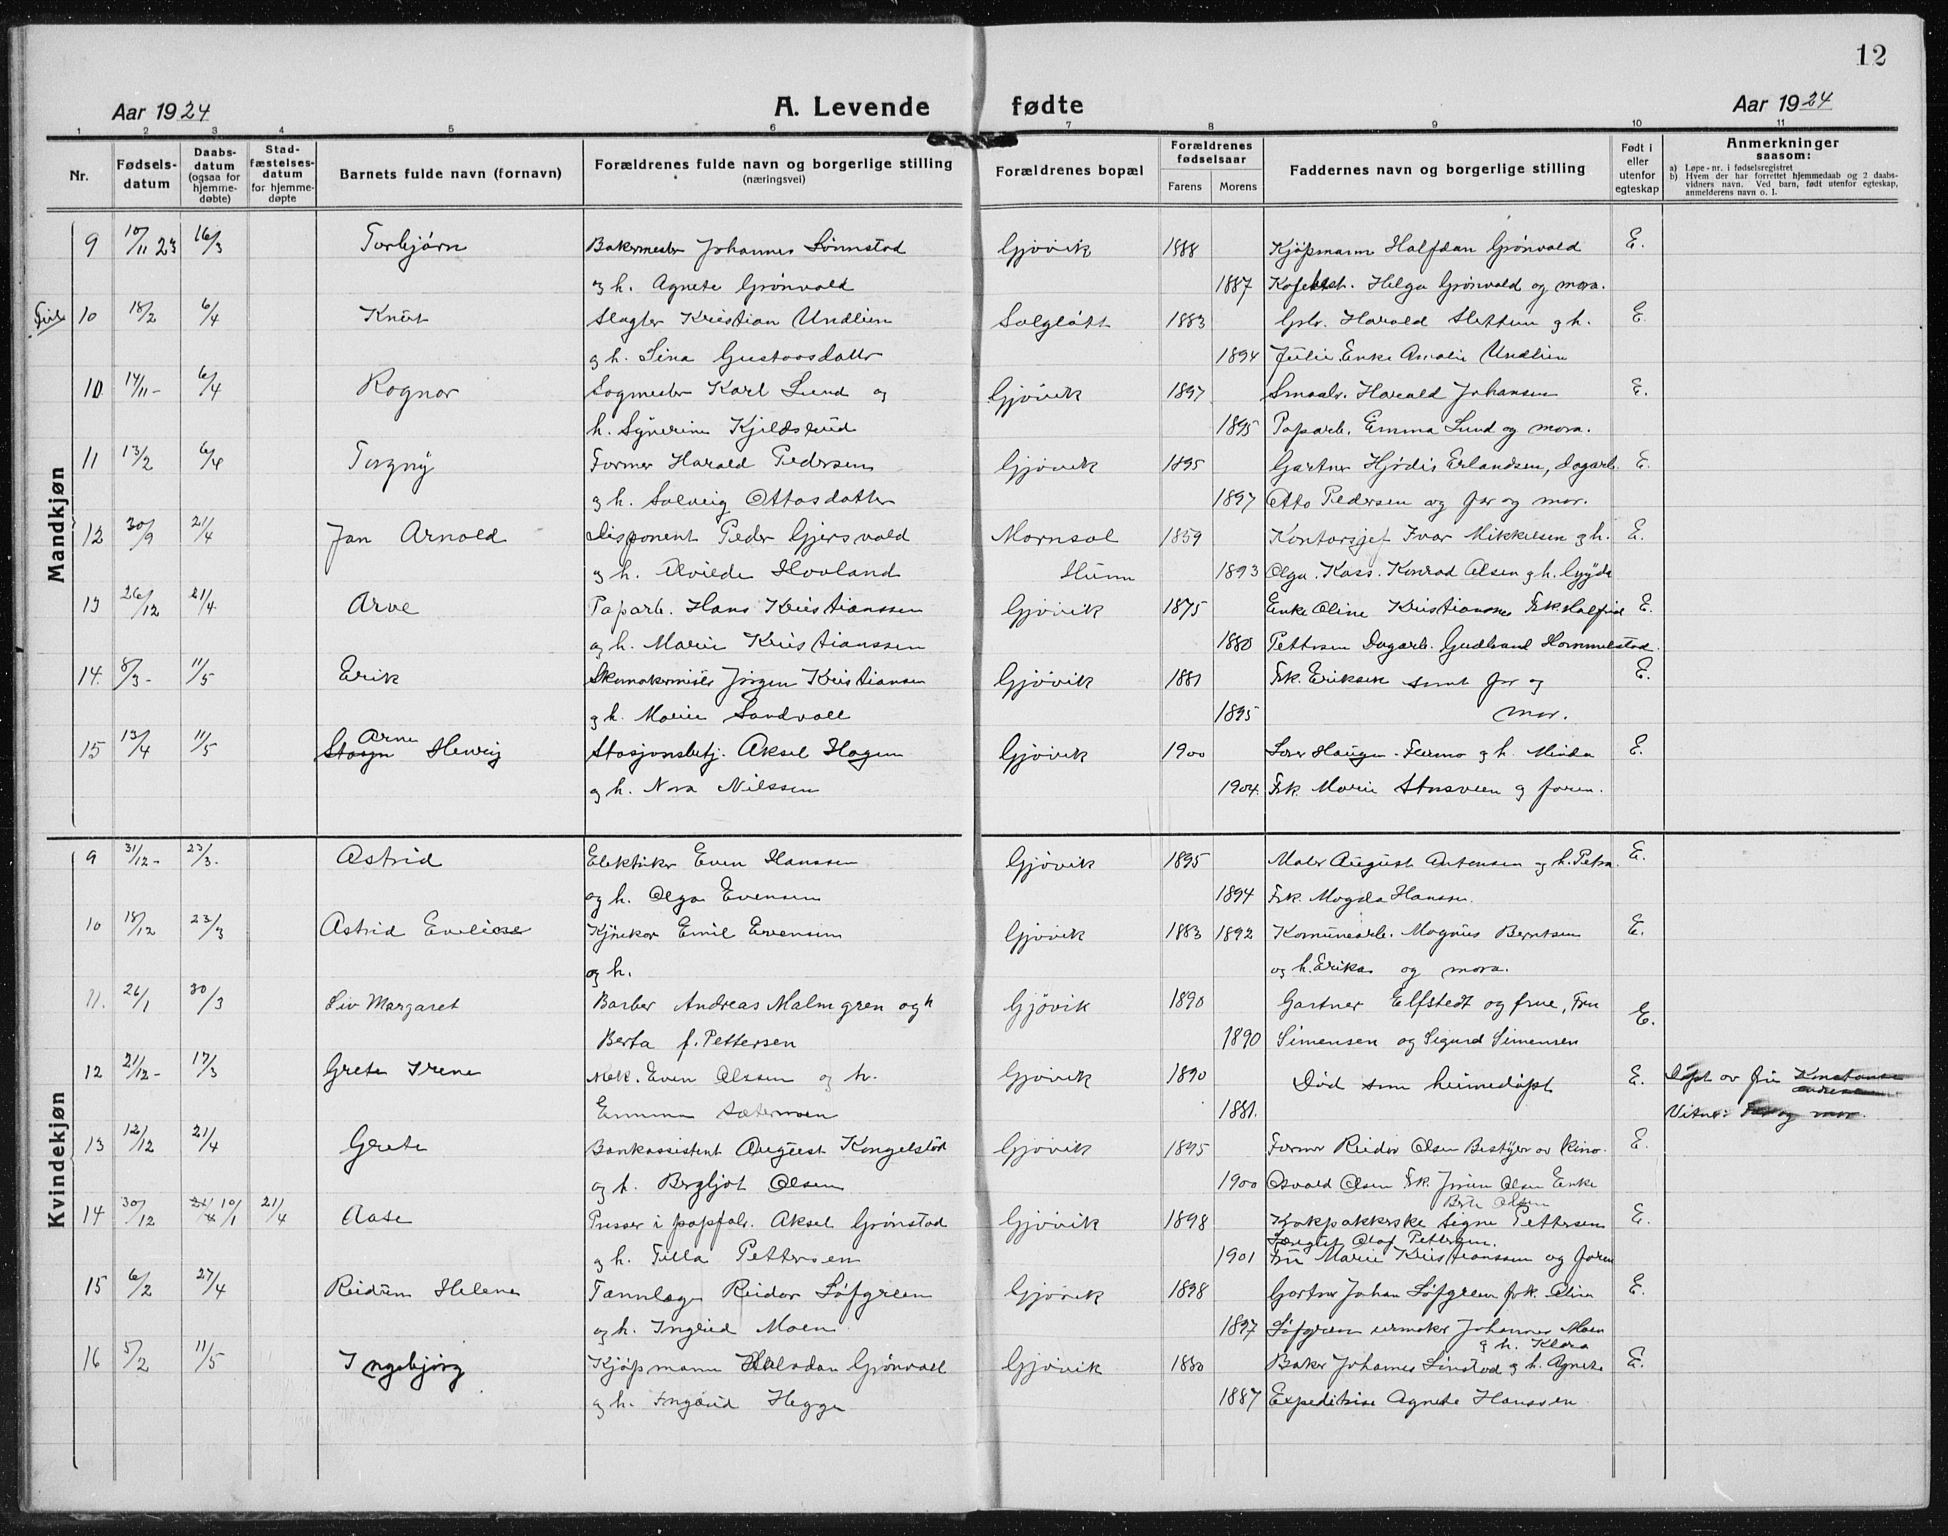 12
Aar 1924 A. Levende fødte Aar 1924
1 2 3 4 5 6 7 8 9 10 11
Nr. Fødsels-datum Daabs-datum (ogsaa for hjemme-døbte) Stad-fæstelses-datum for hjemme-døpte Barnets fulde navn (fornavn) Forældrenes fulde navn og borgerlige stilling (næringsvei) Forældrenes bopæl Forældrenes fødselsaar Farens Morens Faddernes navn og borgerlige stilling Født i eller utenfor egteskap Anmerkninger saasom:
a) Løpe-nr. i fødselsregistret
b) Hvem der har forrettet hjemmedaab og 2 daabs-vidners navn. Ved barn, født utenfor egteskap, anmelderens navn o. l.
Mandkjøn
9 10/11 23 16/3 Torbjørn Bakermester Johannes Sønnstad Gjøvik 1888 Kjøpmann Halfdan Grønvold E.
og h. Agnete Grønvold 1887 Helga Grønvold og mora.
10 18/2 6/4 Knut Slagter Kristian Undlien Solgløtt 1883 Gbr. Harald Sletten og h. E.
og h. Lina Gustavsdatter 1894 Julie. Enke Amalie Undlien
10 14/11 - 6/4 Ragnar Sagmester Karl Lund og Gjøvik 1897 Smaabr. Harald Johansen E.
h. Synerine Kjeldslund 1895 Paparb. Emma Lund og mora.
11 13/2 6/4 Torgny Former Harald Pedersen Gjøvik 1895 Gartner Hjødis Erlandsen, dagarb. E.
og h. Solveig Ottosdatter 1897 Otto Pedersen og far og mor.
12 30/9 21/4 Jan Arnold Disponent Peder Gjersvold 1859 Kontorsjef Ivar Mikkelsen og h. E.
og h. Alvilde Hovland Hunn 1893 Olga. Kass. Konrad Olsen og h.
13 26/12 21/4 Arve Paparb. Hans Kristianssen Gjøvik 1875 Enke Oline Kristiansen Frk. Halfrid E.
og h. Marie Kristianssen 1880 Pettersen Dagarb. Gudbrand Hommelstad.
14. 8/3 - 11/5 Erik Skomakermester Jørgen Kristiansen Gjøvik 1881 Frk. Eriksen samt far og E.
og h. Marie Sandvoll 1895 mor.
15 13/4 11/5 Arne Henrig Stasjonsbetj. Aksel Hagen Gjøvik 1900 Haugen og h. Minda E.
og h. Nora Nilssen 1904. Frk. Marie Stusveen og faren.
Kvindekjøn
9 31/12 - 23/3 - Astrid Elektriker Even Hanssen Gjøvik 1895 Maler August Antonsen og h. Petra. E.
og h. Olga Evensen 1894 Frk. Magda Hansen.
10 18/12 23/3 Astrid Eveliese Emil Evensen Gjøvik 1883 1892 Komunearb. Magnus Berntsen E.
og h. og h. Erika og mora.
11. 26/1 30/3 Liv Margaret Barber Andreas Malmgren og h Gjøvik 1890 Gartner Elfstedt og frue, Fru E.
Berta f. Pettersen 1890 Simensen og Sigurd Simensen
12 21/12 - 17/3 Grete Irene Mek. Even Olssen og h. Gjøvik 1890 Død som heimedøpt E. Døpt av fru Konstanse
Emma Sætermoen 1881. Vitne: Far og mor.
13 12/12 21/4 Grete Bankassistent August Kongelstad Gjøvik 1895 Former Reidar Olsen Bestyrer av kino. E.
og h. Bergljot Olsen 1900 Osvald Olsen Frk. Jørun Olsen Enke
Berte Olsen
14 30/12 21/4 10/1 21/4 Aase Presser i papfab. Aksel Grønstad Gjøvik 1898 Kakpakkerske Signe Pettersen E.
Olaf Pettersen
og h. Tilla Pettersen 1901 Fru Marie Kristianssen og faren
15 6/2 27/4 Reidun Helene Tannlæge Reidar Løfgreen Gjøvik 1898 Gartner Johan Løfgreen frk. Aline E.
og h. Ingrid Moen 1897 Løfgreen urmaker Johannes Moen
og h. Klara
16 5/2 11/5 Ingebjørg Kjøpmann Halvdan Grønvoll Gjøvik 1880 Baker Johannes Sønstad og h. Agnete E.
og h. Ingerid Hegge 1887 Expeditrise Agnete Hanssen